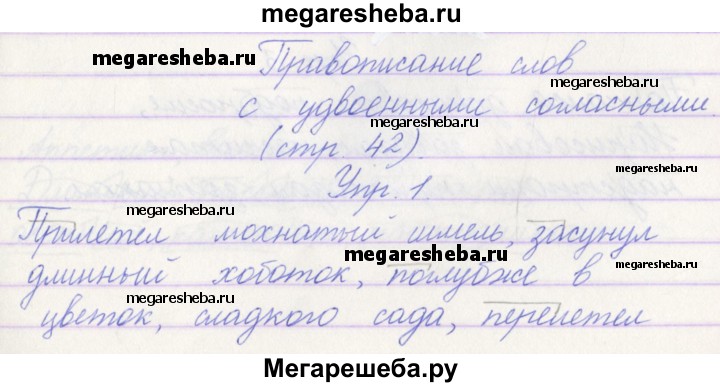 megaresheba.ru
Правописание слов
megaresheba.ru
megaresheba.ru
с удвоенными согласными.
megaresheba.ru
(стр 42).
megaresheba.ru
Упр. 1.
megaresheba.ru
Прилетел мохнатый шмель, засунул
megaresheba.ru
megaresheba.ru
длинный хоботок, поглубже в
megaresheba.ru
megaresheba.ru
цветок, сладкого сада, перелетел
Мегарешеба.ру